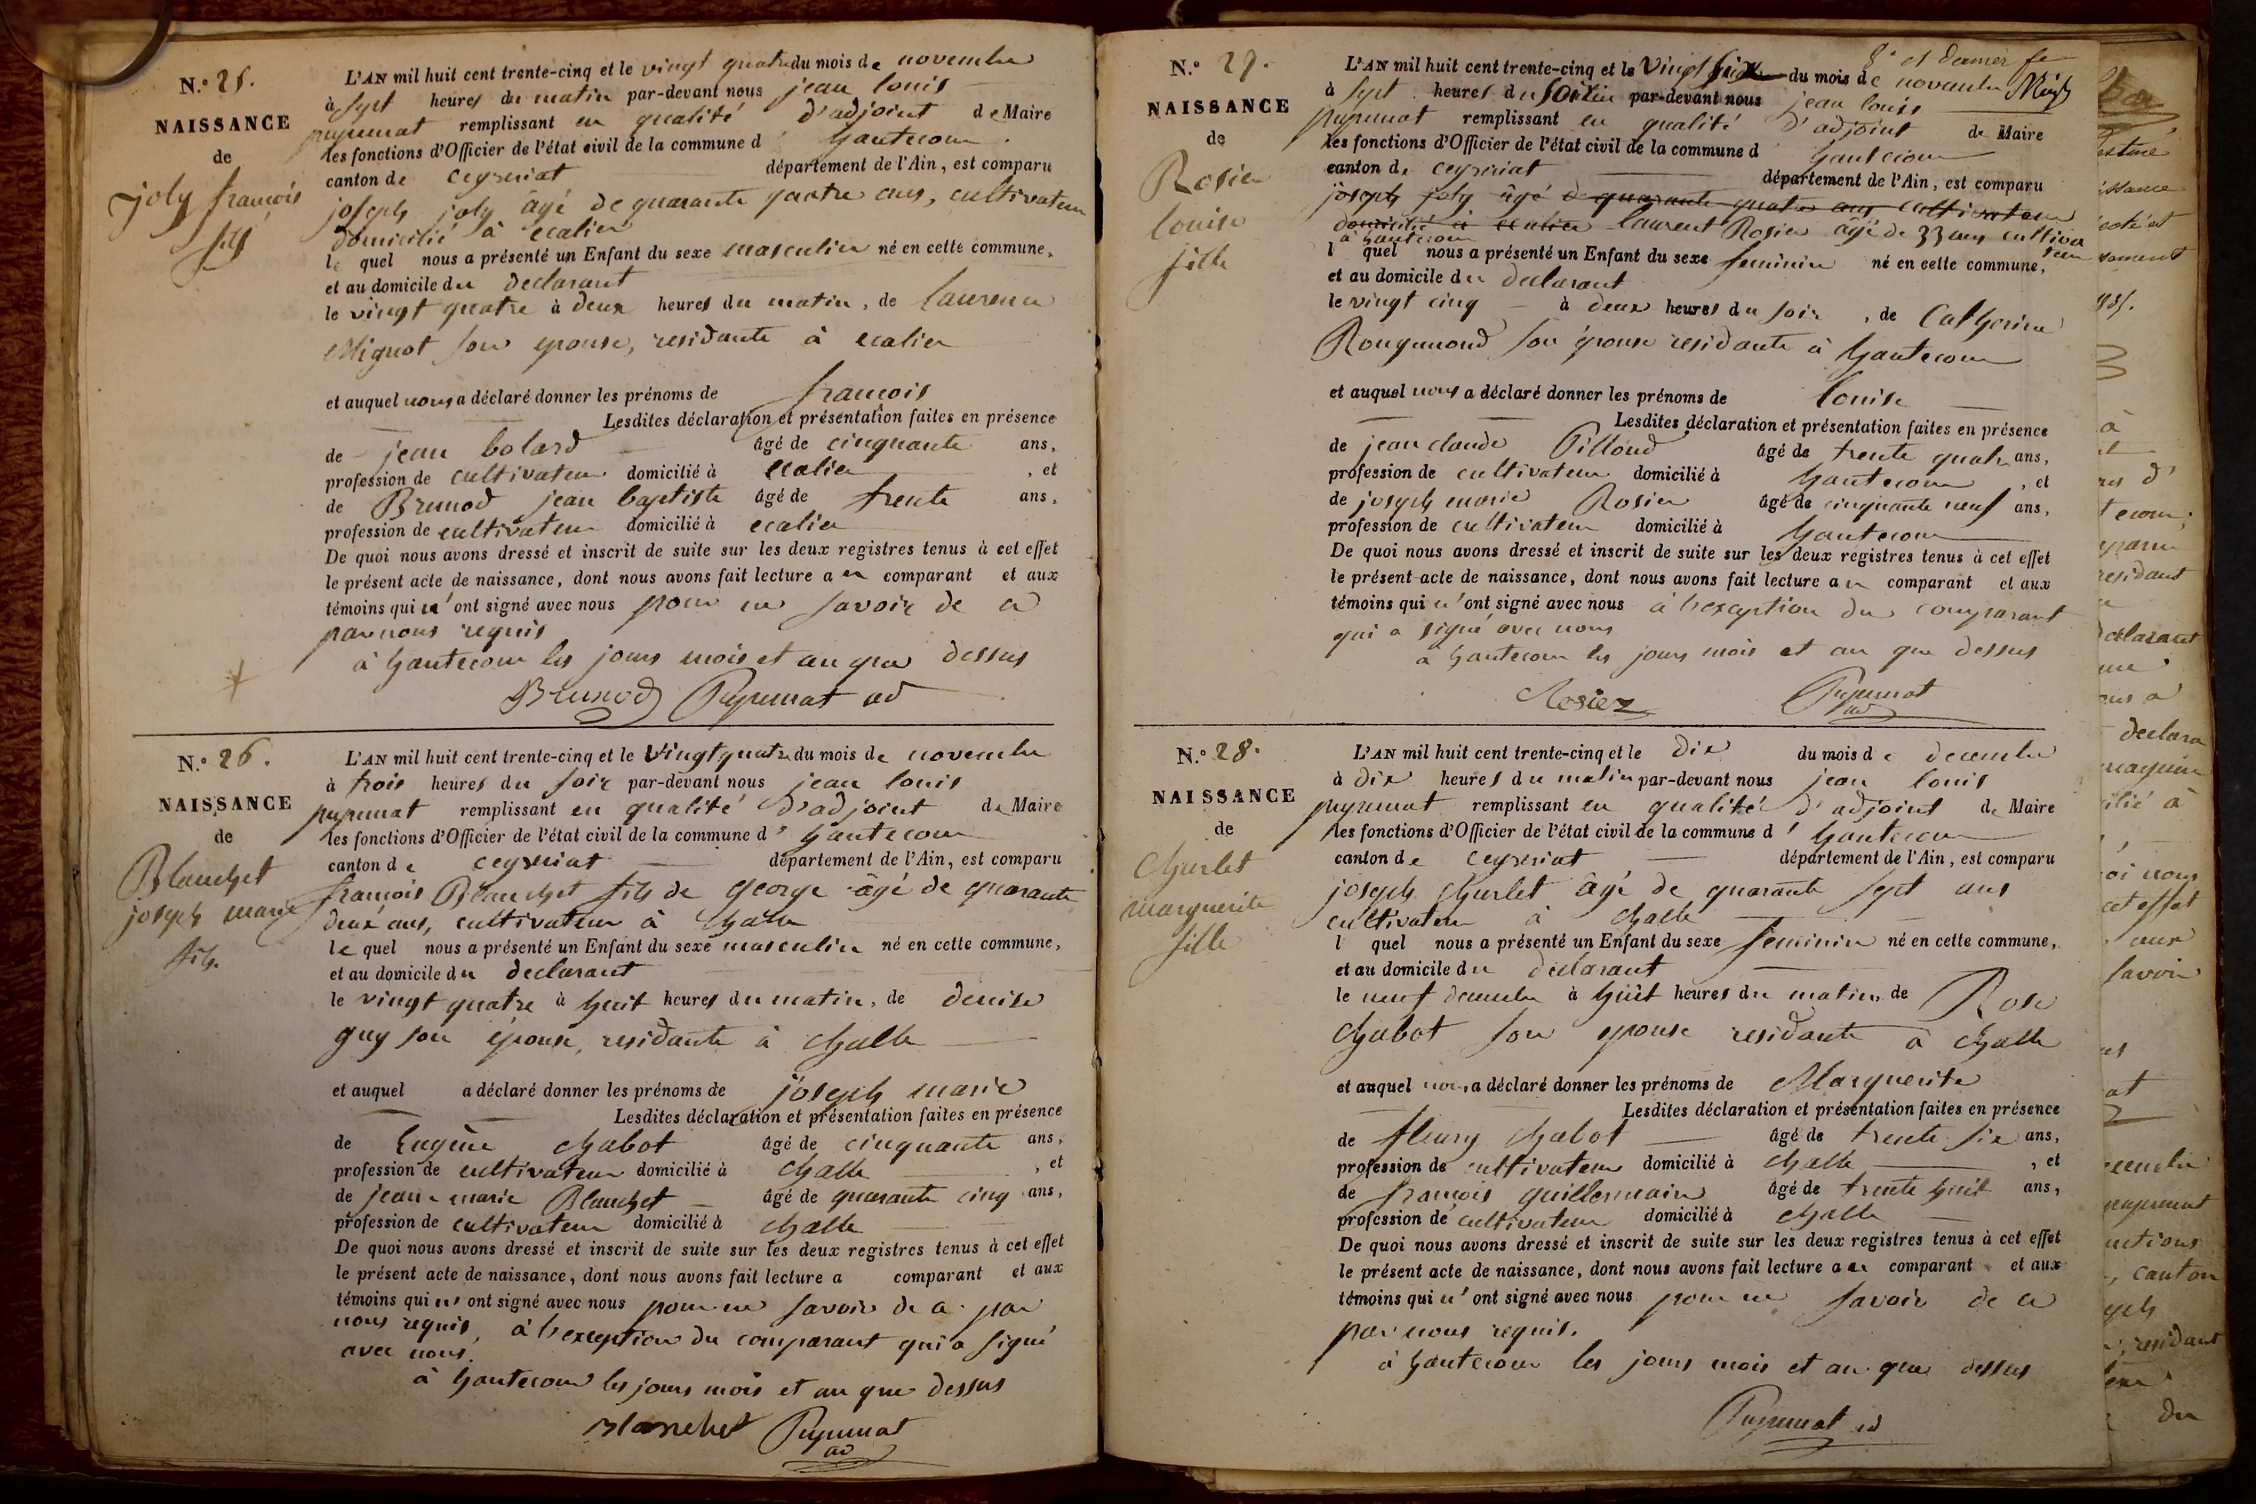 N.º 25.
NAISSANCE
de
joly françois
fils
L'AN mil huit cent trente-cinq et le vingt quatre du mois de novembre
à sept heures du matin par-devant nous jean louis
puymat remplissant en qualité d'adjoint de Maire
les fonctions d'Officier de l'état civil de la commune d' hautecour
canton de ceyzeriat département de l'Ain, est comparu
joseph joly âgé de quarante quatre ans, cultivateur
domicilié à
le quel nous a présenté un Enfant du sexe masculin né en cette commune,
et au domicile du declarant
le vingt quatre à deux heures du matin, de laurence
Mignot son epouse, residante à
et auquel nous a déclaré donner les prénoms de françois
Lesdites déclaration et présentation faites en présence
de jean bolard âgé de cinquante ans,
profession de cultivateur domicilié à , et
de Brunod jean baptiste âgé de trente ans,
profession de cultivateur domicilié à
De quoi nous avons dressé et inscrit de suite sur les deux registres tenus à cet effet
le présent acte de naissance, dont nous avons fait lecture au comparant et aux
témoins qui n'ont signé avec nous pour ne savoir de ce
par nous requis
à hautecour les jours mois et an que dessus
Brunod ad
N.º 26.
NAISSANCE
de
Blanchet
joseph marie
fils.
L'AN mil huit cent trente-cinq et le Vingt quatre du mois de novembre
à trois heures du soir par-devant nous jean louis
remplissant en qualité d'adjoint de Maire
les fonctions d'Officier de l'état civil de la commune d' hautecour
canton de ceyzeriat département de l'Ain, est comparu
françois Blanchet fils de george âgé de quarante
deux ans, cultivateur à challe
le quel nous a présenté un Enfant du sexe masculin né en cette commune,
et au domicile du declarant
le vingt quatre à huit heures du matin, de denise
guy son épouse, residante à challe
et auquel a déclaré donner les prénoms de joseph marie
Lesdites déclaration et présentation faites en présence
de Eugène chabot âgé de cinquante ans,
profession de cultivateur domicilié à challe , et
de jean marie Blanchet âgé de quarante cinq ans,
profession de cultivateur domicilié à challe
De quoi nous avons dressé et inscrit de suite sur les deux registres tenus à cet effet
le présent acte de naissance, dont nous avons fait lecture a comparant et aux
témoins qui n'ont signé avec nous pour ne savoir de ce par
nous requis, à l'exception du comparant qui a signé
avec nous.
à hautecour les jours mois et an que dessus
Blanchet
ad
N.º 27.
NAISSANCE
de
Rosier
louise
fille
L'AN mil huit cent trente-cinq et le Vingt six du mois de novembre
à sept heures du soir par-devant nous jean louis
remplissant en qualité d'adjoint de Maire
les fonctions d'Officier de l'état civil de la commune d hautecour
canton de ceyzeriat département de l'Ain, est comparu
joseph joly âgé de quarante quatre ans cultivateur
domicilié à laurent Rosier âgé de 33 ans cultivateur
à hautecour
l quel nous a présenté un Enfant du sexe feminin né en cette commune,
et au domicile du declarant
le vingt cinq à deux heures du soir, de Catherine
Rougemond son épouse residante à hautecour
et auquel nous a déclaré donner les prénoms de louise
Lesdites déclaration et présentation faites en présence
de jean claude Pilloud âgé de trente quatre ans,
profession de cultivateur domicilié à hautecour , et
de joseph marie Rosier âgé de cinquante neuf ans,
profession de cultivateur domicilié à hautecour
De quoi nous avons dressé et inscrit de suite sur les deux registres tenus à cet effet
le présent acte de naissance, dont nous avons fait lecture au comparant et aux
témoins qui n'ont signé avec nous à l'exception du comparant
qui a signé avec nous
à hautecour les jours mois et an que dessus
Rosier
ad
N.º 28.
NAISSANCE
de
Churlet
marguerite
fille
L'AN mil huit cent trente-cinq et le dix du mois de decembre
à dix heures du matin par-devant nous jean louis
remplissant en qualité d'adjoint de Maire
les fonctions d'Officier de l'état civil de la commune d' hautecour
canton de ceyzeriat département de l'Ain, est comparu
joseph Churlet âgé de quarante sept ans
cultivateur à challe
l quel nous a présenté un Enfant du sexe feminin né en cette commune,
et au domicile du declarant
le neuf decembre à huit heures du matin, de Rose
chabot son epouse residante à challe
et auquel nous a déclaré donner les prénoms de Marguerite
Lesdites déclaration et présentation faites en présence
de fleury chabot âgé de trente six ans,
profession de cultivateur domicilié à challe , et
de françois guillermain âgé de trente huit ans,
profession de cultivateur domicilié à challe
De quoi nous avons dressé et inscrit de suite sur les deux registres tenus à cet effet
le présent acte de naissance, dont nous avons fait lecture au comparant et aux
témoins qui n'ont signé avec nous pour ne savoir de ce
par nous requis.
à hautecour les jours mois et an que dessus
ad